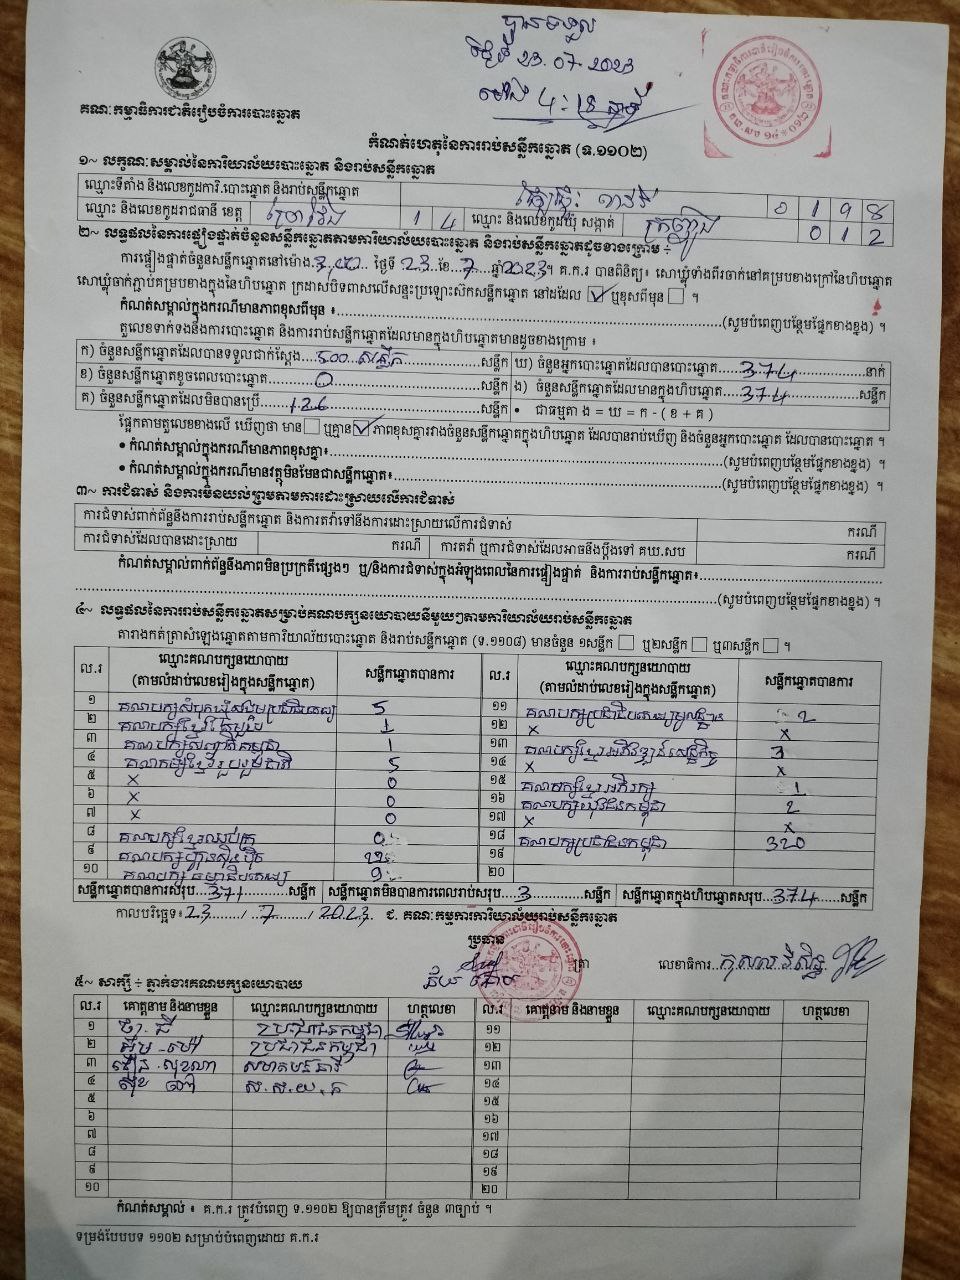 បានទទួល
ថ្ងៃទី 23.07.2023
ម៉ោង 4:
គណៈកម្មាធិការជាតិរៀបចំការបោះឆ្នោត
កំណត់ហេតុនៃការរាប់សន្លឹកឆ្នោត (ទ.១១០២)
១~ លក្ខណៈសម្គាល់នៃការិយាល័យបោះឆ្នោត និងរាប់សន្លឹកឆ្នោត
ឈ្មោះទីតាំង និងលេខកូដការិ.បោះឆ្នោត និងរាប់សន្លឹកឆ្នោត 0 1 9 8
ឈ្មោះ និងលេខកូដរាជធានី ខេត្ត ព្រៃវែង 1 4 ឈ្មោះ និងលេខកូដឃុំ សង្កាត់ 0 1 2
២~ លទ្ធផលនៃការផ្ទៀងផ្ទាត់ចំនួនសន្លឹកឆ្នោតតាមការិយាល័យបោះឆ្នោត និងរាប់សន្លឹកឆ្នោតដូចខាងក្រោម ÷
ការផ្ទៀងផ្ទាត់ចំនួនសន្លឹកឆ្នោតនៅម៉ោង 3,00 ថ្ងៃទី 23 ខែ 7 ឆ្នាំ 2023។ គ.ក.រ បានពិនិត្យ៖ សោឃ្លុំទាំងពីរចាក់នៅគម្របខាងក្រៅនៃហិបឆ្នោត
សោឃ្លុំចាក់ភ្ជាប់គម្របខាងក្នុងនៃហិបឆ្នោត ក្រដាសបិទពាសលើសន្ទះប្រឡោះស៊កសន្លឹកឆ្នោត នៅដដែល ☑ ឬខុសពីមុន ☐ ។
កំណត់សម្គាល់ក្នុងករណីមានភាពខុសពីមុន ៖ (សូមបំពេញបន្ថែមផ្នែកខាងខ្នង) ។
តួលេខទាក់ទងនឹងការបោះឆ្នោត និងការរាប់សន្លឹកឆ្នោតដែលមានក្នុងហិបឆ្នោតមានដូចខាងក្រោម ៖
ក) ចំនួនសន្លឹកឆ្នោតដែលបានទទួលជាក់ស្តែង 500 សន្លឹក សន្លឹក ឃ) ចំនួនអ្នកបោះឆ្នោតដែលបានបោះឆ្នោត 374 នាក់
ខ) ចំនួនសន្លឹកឆ្នោតខូចពេលបោះឆ្នោត 0 សន្លឹក ង) ចំនួនសន្លឹកឆ្នោតដែលមានក្នុងហិបឆ្នោត 374 សន្លឹក
គ) ចំនួនសន្លឹកឆ្នោតដែលមិនបានប្រើ 126 សន្លឹក • ជាធម្មតា ង = ឃ = ក - ( ខ + គ )
ផ្អែកតាមតួលេខខាងលើ ឃើញថា មាន ☐ ឬគ្មាន ☑ ភាពខុសគ្នារវាងចំនួនសន្លឹកឆ្នោតក្នុងហិបឆ្នោត ដែលបានរាប់ឃើញ និងចំនួនអ្នកបោះឆ្នោត ដែលបានបោះឆ្នោត ។
• កំណត់សម្គាល់ក្នុងករណីមានភាពខុសគ្នា៖ (សូមបំពេញបន្ថែមផ្នែកខាងខ្នង) ។
• កំណត់សម្គាល់ក្នុងករណីមានវត្ថុមិនមែនជាសន្លឹកឆ្នោត៖ (សូមបំពេញបន្ថែមផ្នែកខាងខ្នង) ។
៣~ ការជំទាស់ និងការមិនយល់ព្រមតាមការដោះស្រាយលើការជំទាស់
ការជំទាស់ពាក់ព័ន្ធនឹងការរាប់សន្លឹកឆ្នោត និងការតវ៉ាទៅនឹងការដោះស្រាយលើការជំទាស់ ករណី
ការជំទាស់ដែលបានដោះស្រាយ ករណី ការតវ៉ា ឬការជំទាស់ដែលអាចនឹងប្តឹងទៅ គឃ.សប ករណី
កំណត់សម្គាល់ពាក់ព័ន្ធនឹងភាពមិនប្រក្រតីផ្សេងៗ ឬ/និងការជំទាស់ក្នុងអំឡុងពេលនៃការផ្ទៀងផ្ទាត់ និងការរាប់សន្លឹកឆ្នោត៖
(សូមបំពេញបន្ថែមផ្នែកខាងខ្នង) ។
៤~ លទ្ធផលនៃការរាប់សន្លឹកឆ្នោតសម្រាប់គណបក្សនយោបាយនីមួយៗតាមការិយាល័យរាប់សន្លឹកឆ្នោត
តារាងកត់ត្រាសំឡេងឆ្នោតតាមការិយាល័យបោះឆ្នោត និងរាប់សន្លឹកឆ្នោត (ទ.១១០៨) មានចំនួន ១សន្លឹក ☐ ឬ២សន្លឹក ☐ ឬ៣សន្លឹក ☐ ។
ល.រ ឈ្មោះគណបក្សនយោបាយ (តាមលំដាប់លេខរៀងក្នុងសន្លឹកឆ្នោត) សន្លឹកឆ្នោតបានការ ល.រ ឈ្មោះគណបក្សនយោបាយ (តាមលំដាប់លេខរៀងក្នុងសន្លឹកឆ្នោត) សន្លឹកឆ្នោតបានការ
១ គណបក្សសំបុកឃ្មុំសង្គមប្រជាធិបតេយ្យ 5 ១១ គណបក្សប្រជាធិបតេយ្យមូលដ្ឋាន 2
២ គណបក្សខ្មែរតែមួយ 1 ១២ x x
៣ គណបក្សសញ្ជាតិកម្ពុជា 1 ១៣ គណបក្សខ្មែរអភិវឌ្ឍន៍សេដ្ឋកិច្ច 3
៤ គណបក្សខ្មែររួបរួមជាតិ 5 ១៤ x x
៥ x 0 ១៥ គណបក្សខ្មែរអភិរក្ស 1
៦ x 0 ១៦ គណបក្សយុវជនកម្ពុជា 2
៧ x 0 ១៧ x x
៨ គណបក្សខ្មែរឈប់ក្រ 0 ១៨ គណបក្សប្រជាជនកម្ពុជា 320
៩ គណបក្សហ្វ៊ុនស៊ិនប៉ិច 22 ១៩
១០ គណបក្សធម្មាធិបតេយ្យ 9 ២០
សន្លឹកឆ្នោតបានការសរុប 371 សន្លឹក សន្លឹកឆ្នោតមិនបានការពេលរាប់សរុប 3 សន្លឹក សន្លឹកឆ្នោតក្នុងហិបឆ្នោតសរុប 374 សន្លឹក
កាលបរិច្ឆេទ៖ 23 / 7 / 2023 ជ. គណៈកម្មការការិយាល័យរាប់សន្លឹកឆ្នោត
ប្រធាន
ត្រា លេខាធិការ កុសល វិសិទ្ធ
៥~ សាក្សី ÷ ភ្នាក់ងារគណបក្សនយោបាយ
ល.រ គោត្តនាម និងនាមខ្លួន ឈ្មោះគណបក្សនយោបាយ ហត្ថលេខា ល.រ គោត្តនាម និងនាមខ្លួន ឈ្មោះគណបក្សនយោបាយ ហត្ថលេខា
១ ប្រជាជនកម្ពុជា ១១
២ ប្រជាជនកម្ពុជា ១២
៣ ១៣
៤ ស.ស.យ.ក ១៤
៥ ១៥
៦ ១៦
៧ ១៧
៨ ១៨
៩ ១៩
១០ ២០
កំណត់សម្គាល់ ៖ គ.ក.រ ត្រូវបំពេញ ទ.១១០២ ឱ្យបានត្រឹមត្រូវ ចំនួន ៣ច្បាប់ ។
ទម្រង់បែបបទ ១១០២ សម្រាប់បំពេញដោយ គ.ក.រ